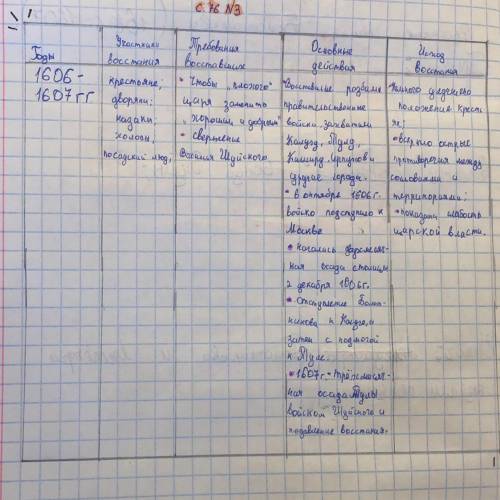 с. 76 №3
Годы
Участники
восстания
Требования
восставших
Основные
действия
Исход
восстания
1606-
1607 г.г
крестьяне;
дворяни;
казаки;
холопы,
посадский люд,
• Чтобы "плохого"
царя заменить
"хорошим и добрым"
• свержение
Василия Шуйского.
Восставшие разбили
правительственные
войска, захватили
Калугу, Тулу,
Каширу, Серпухов и
другие города.
• в октябре 1606г.
войско подступило к
Москве
• началась двухмесяч-
ная осада столицы
2 декабря 1606г.
• Отступление Болот-
никова к Калуге, а
затем с подмогой
к Туле.
• 1607 г. - трёхмесяч-
ная осада Тулы
войском Шуйского и
подавление восстания.
положение кресть
ян;
противоречия между
сословиями и
территориями;
• показали слабость
царской власти.